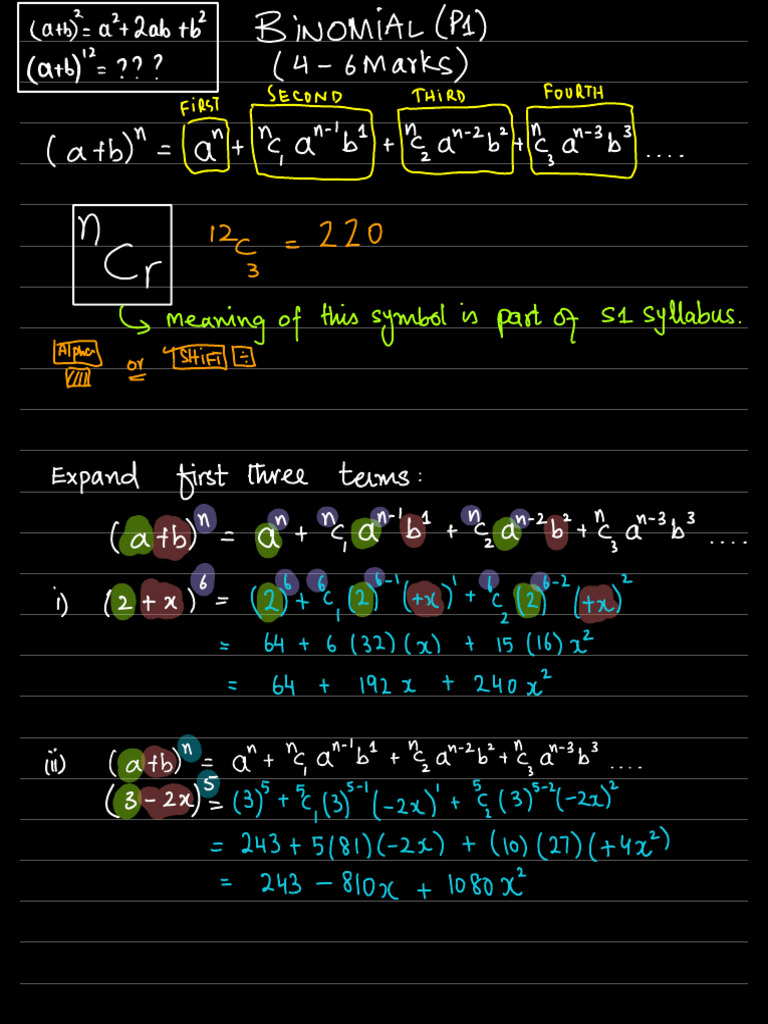 (a+b)² = a² + 2ab + b²
(a+b)¹² = ? ? ?
BINOMIAL (P1)
(4 – 6 Marks)
FIRST SECOND THIRD FOURTH
(a+b)ⁿ = aⁿ + ⁿC₁ aⁿ⁻¹b¹ + ⁿC₂ aⁿ⁻²b² + ⁿC₃ aⁿ⁻³b³ ....
ⁿCᵣ ¹²C₃ = 220
↳ meaning of this symbol is part of S1 syllabus.
Alpha or SHIFT ÷
Expand first three terms:
(a+b)ⁿ = aⁿ + ⁿC₁ aⁿ⁻¹b¹ + ⁿC₂ aⁿ⁻²b² + ⁿC₃ aⁿ⁻³b³ ....
i) (2+x)⁶ = (2)⁶ + ⁶C₁ (2)⁶⁻¹ (+x)¹ + ⁶C₂ (2)⁶⁻² (+x)²
= 64 + 6 (32)(x) + 15 (16) x²
= 64 + 192x + 240x²
(ii) (a+b)ⁿ = aⁿ + ⁿC₁ aⁿ⁻¹b¹ + ⁿC₂ aⁿ⁻²b² + ⁿC₃ aⁿ⁻³b³ ....
(3 – 2x)⁵ = (3)⁵ + ⁵C₁ (3)⁵⁻¹ (-2x)¹ + ⁵C₂ (3)⁵⁻² (-2x)²
= 243 + 5(81)(-2x) + (10)(27)(+4x²)
= 243 – 810x + 1080x²